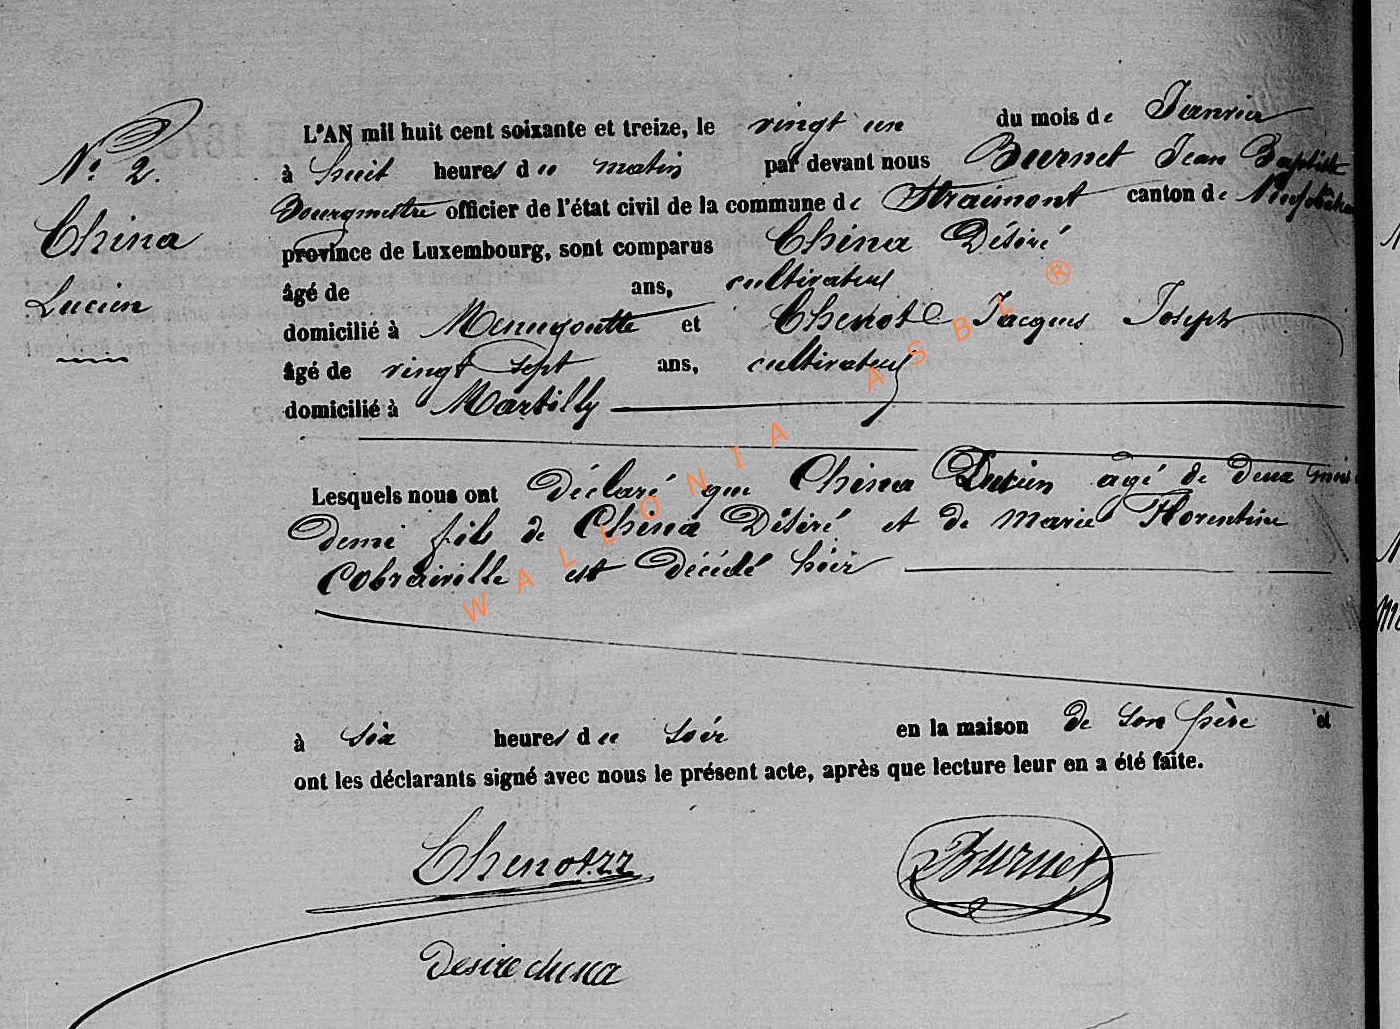 L'AN mil huit cent soixante et treize, le vingt un du mois de Janvier
N.º 2. à huit heures du matin par devant nous Burnet Jean Baptiste
Bourgmestre officier de l'état civil de la commune de Straimont canton de Neufchâteau
China province de Luxembourg, sont comparus China Désiré
Lucien âgé de ans, cultivateur
domicilié à Menugoutte et Chenot Jacques Joseph
âgé de vingt sept ans, cultivateur
domicilié à Martilly
Lesquels nous ont Déclaré que China Lucien agé de deux mois
demi fils de China Désiré et de marie Florentine
Cobraiville est Décédé hier
à six heures du soir en la maison de son père et
ont les déclarants signé avec nous le présent acte, après que lecture leur en a été faite.
Chenot.J.J. Burnet
Desire china
WALLONIA ASBL ®